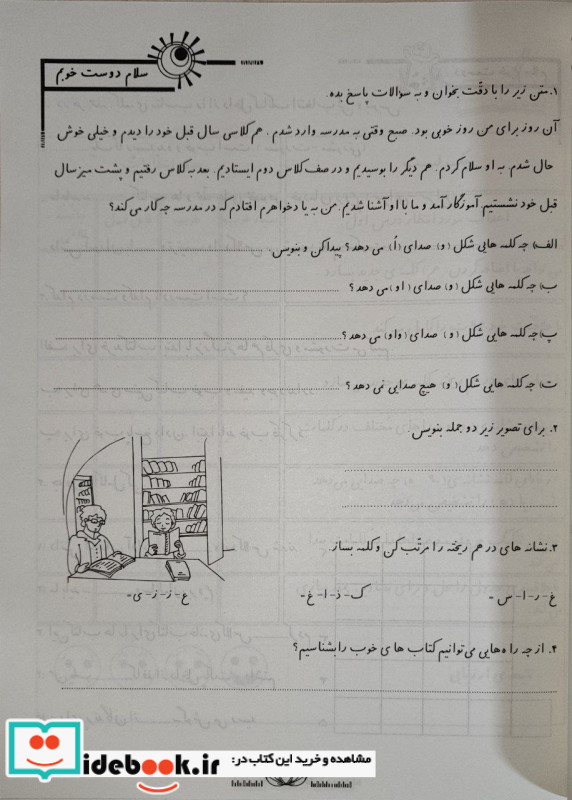 سلام دوست خوبم
۱. متن زیر را با دقّت بخوان و به سوالات پاسخ بده.
آن روز برای من روز خوبی بود. صبح وقتی به مدرسه وارد شدم. هم کلاسی سال قبل خود را دیدم و خیلی خوش
حال شدم. به او سلام کردم. هم دیگر را بوسیدیم و در صف کلاس دوم ایستادیم. بعد به کلاس رفتیم و پشت میز سال
قبل خود نشستیم آموزگار آمد و ما با او آشنا شدیم. من به یاد خواهرم افتادم که در مدرسه چه کار می کند؟
الف) چه کلمه هایی شکل (و) صدای (اُ) می دهد؟ پیدا کن و بنویس.
ب) چه کلمه هایی شکل (و) صدای (او) می دهد؟
پ) چه کلمه هایی شکل (و) صدای (واو) می دهد؟
ت) چه کلمه هایی شکل (و) هیچ صدایی نمی دهد؟
۲. برای تصویر زیر دو جمله بنویس.
۳. نشانه های در هم ریخته را مرتّب کن و کلمه بساز.
غ - ر - ا - س - ک - ذ - ا - غ - ع - ز - ز - ی -
۴. از چه راه هایی می توانیم کتاب های خوب را بشناسیم؟
مشاهده و خرید این کتاب در:
idebook.ir